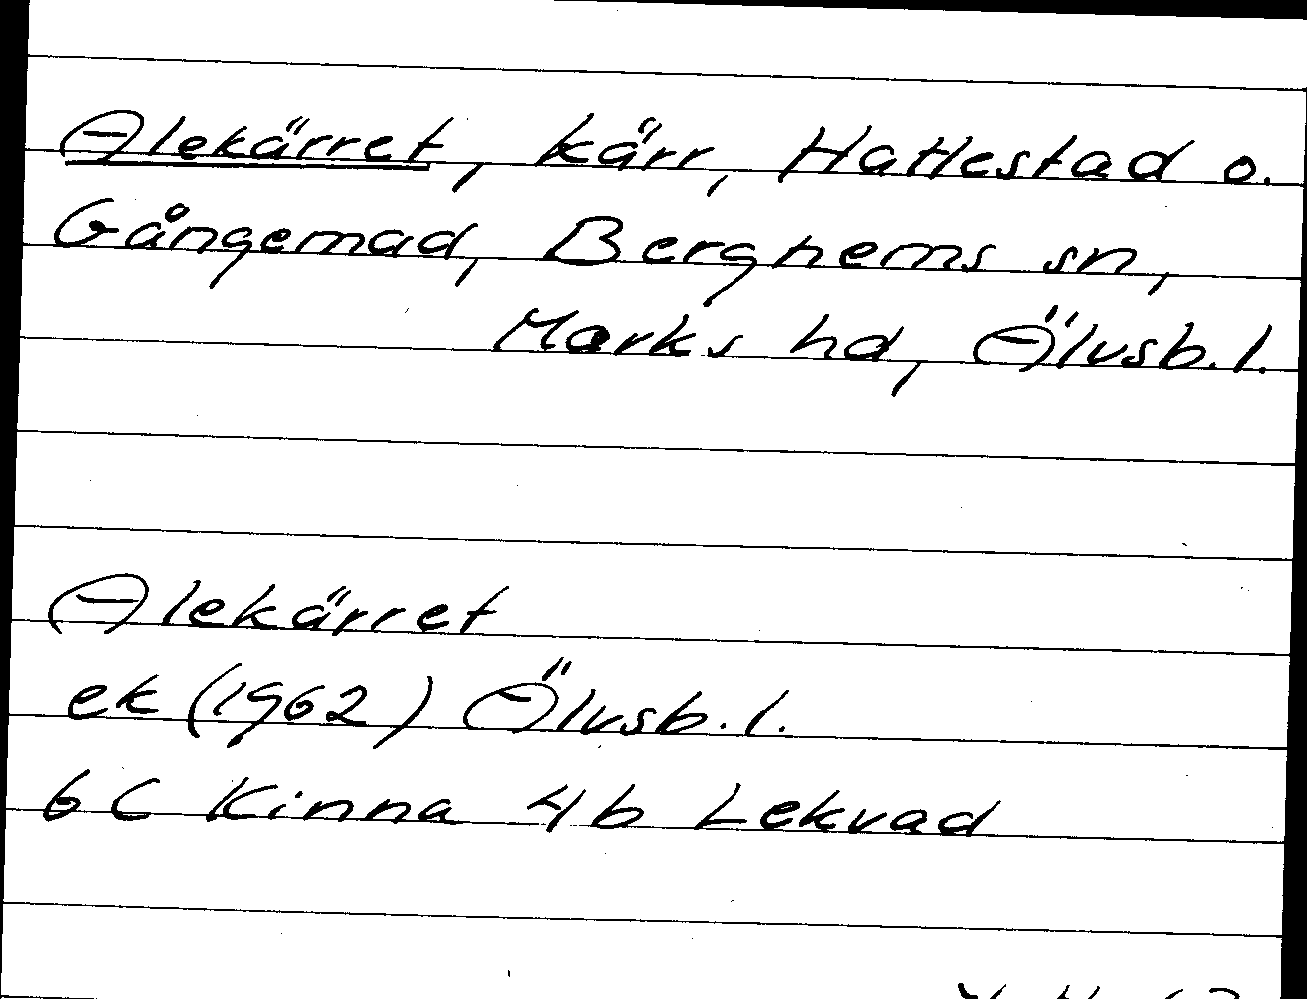 Alekärret, kärr, Hatlestad o.
Gångemad, Berghems sn,
Marks hd, Älvsb.l.
Alekärret
ek (1962) Älvsb.l.
6 C Kinna 4b Lekvad